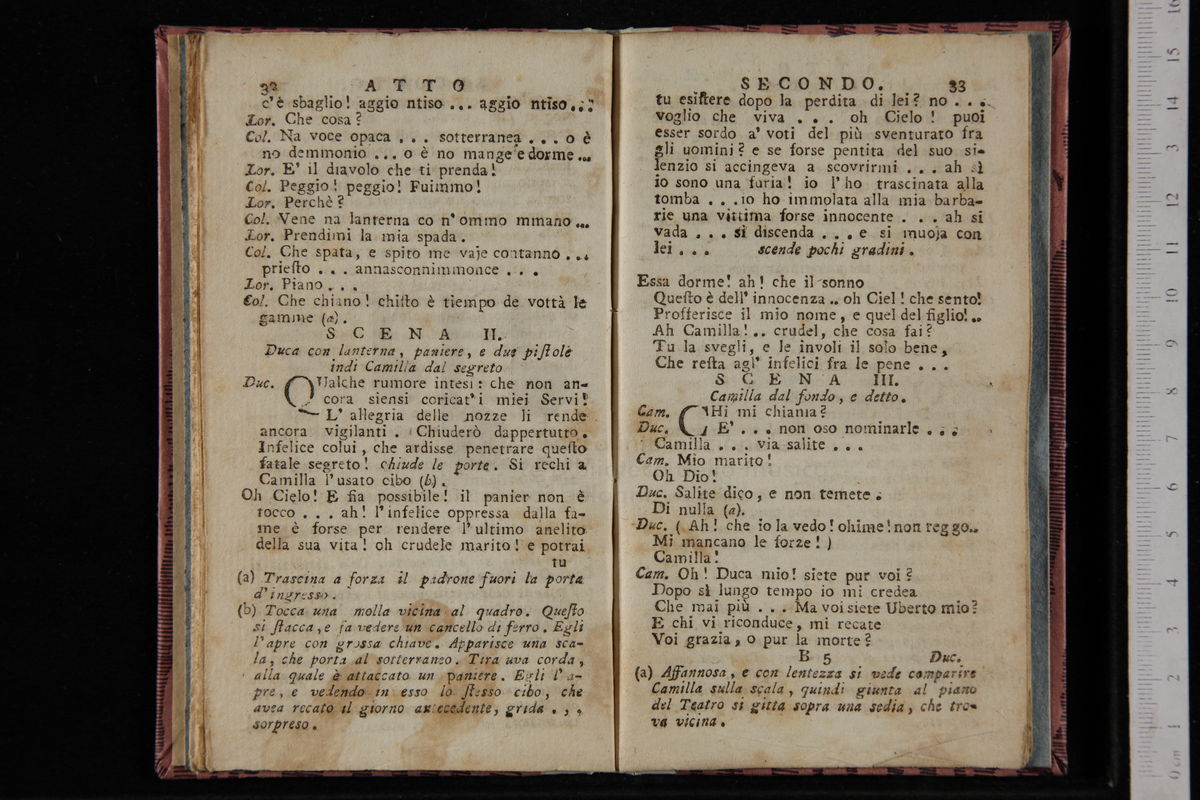 32 ATTO
c'è sbaglio! aggio ntiso ... aggio ntiso...
Lor. Che cosa?
Col. Na voce opaca ... sotterranea ... o è
no demmonio ... o è no mange e dorme...
Lor. E' il diavolo che ti prenda!
Col. Peggio! peggio! Fuimmo!
Lor. Perchè?
Col. Vene na lanterna co n'ommo mmano...
Lor. Prendimi la mia spada.
Col. Che spata, e spito me vaje contanno...
priesto ... annasconnimmonce ...
Lor. Piano...
Col. Che chiano! chisto è tiempo de vottà le
gamme (a).
SCENA II.
Duca con lanterna, paniere, e due pistole
indi Camilla dal segreto
Duc. QUalche rumore intesi: che non an-
cora siensi coricat'i miei Servi!
L'allegria delle nozze li rende
ancora vigilanti. Chiuderò dappertutto.
Infelice colui, che ardisse penetrare questo
fatale segreto! chiude le porte. Si rechi a
Camilla l'usato cibo (b).
Oh Cielo! E fia possibile! il panier non è
tocco ... ah! l'infelice oppressa dalla fa-
me è forse per rendere l'ultimo anelito
della sua vita! oh crudele marito! e potrai
tu
(a) Trascina a forza il padrone fuori la porta
d'ingresso.
(b) Tocca una molla vicina al quadro. Questo
si stacca, e fa vedere un cancello di ferro. Egli
l'apre con grossa chiave. Apparisce una sca-
la, che porta al sotterraneo. Tira uva corda,
alla quale è attaccato un paniere. Egli l'a-
pre, e vedendo in esso lo stesso cibo, che
avea recato il giorno antecedente, grida ...
sorpreso.
SECONDO. 33
tu esistere dopo la perdita di lei? no ...
voglio che viva ... oh Cielo! puoi
esser sordo a' voti del più sventurato fra
gli uomini? e se forse pentita del suo si-
lenzio si accingeva a scovrirmi ... ah sì
io sono una furia! io l'ho trascinata alla
tomba ... io ho immolata alla mia barba-
rie una vittima forse innocente ... ah si
vada ... si discenda ... e si muoja con
lei ... scende pochi gradini.
Essa dorme! ah! che il sonno
Questo è dell'innocenza .. oh Ciel! che sento!
Profferisce il mio nome, e quel del figlio!..
Ah Camilla! .. crudel, che cosa fai?
Tu la svegli, e le involi il solo bene,
Che resta agl'infelici fra le pene ...
SCENA III.
Camilla dal fondo, e detto.
Cam. CHi mi chiama?
Duc. E' ... non oso nominarle ...
Camilla ... via salite ...
Cam. Mio marito!
Oh Dio!
Duc. Salite dico, e non temete.
Di nulla (a).
Duc. (Ah! che io la vedo! ohime! non reggo..
Mi mancano le forze!)
Camilla!
Cam. Oh! Duca mio! siete pur voi?
Dopo sì lungo tempo io mi credea
Che mai più ... Ma voi siete Uberto mio?
E chi vi riconduce, mi recate
Voi grazia, o pur la morte?
B 5 Duc.
(a) Affannosa, e con lentezza si vede comparire
Camilla sulla scala, quindi giunta al piano
del Teatro si gitta sopra una sedia, che tro-
va vicina.
0 cm 1 2 3 4 5 6 7 8 9 10 11 12 13 14 15 16